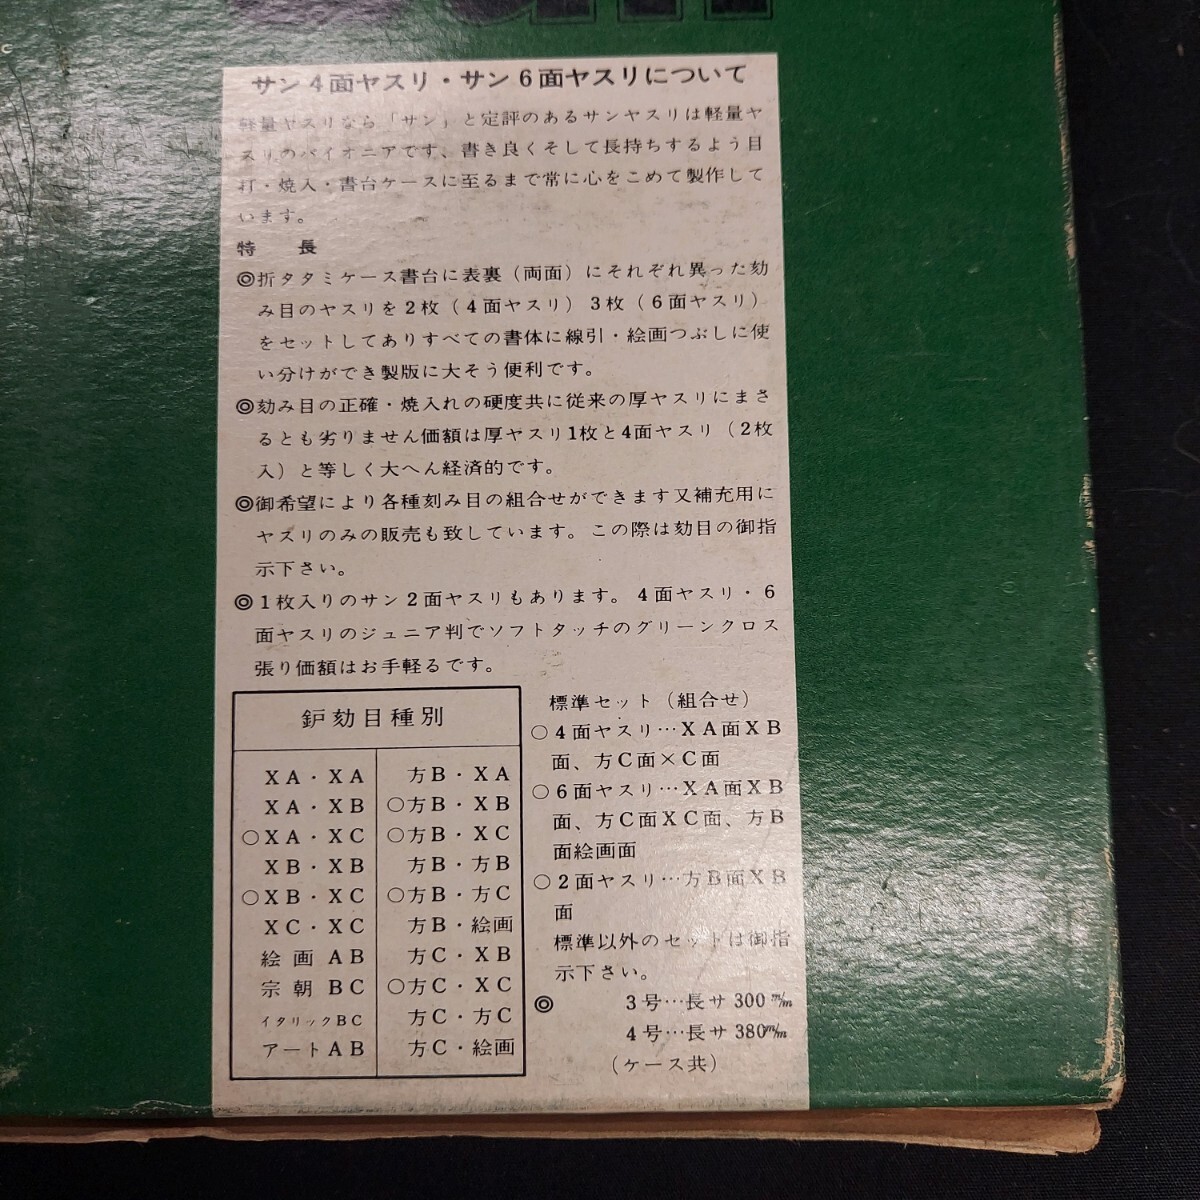 サン4面ヤスリ・サン6面ヤスリについて
軽量ヤスリなら「サン」と定評のあるサンヤスリは軽量ヤ
スリのパイオニアです、書き良くそして長持ちするよう目
打・焼入・書台ケースに至るまで常に心をこめて製作して
います。
特 長
◎折タタミケース書台に表裏(両面)にそれぞれ異った刻
み目のヤスリを2枚(4面ヤスリ)3枚(6面ヤスリ)
をセットしてありすべての書体に線引・絵画つぶしに使
い分けができ製版に大そう便利です。
◎刻み目の正確・焼入れの硬度共に従来の厚ヤスリにまさ
るとも劣りません価額は厚ヤスリ1枚と4面ヤスリ(2枚
入)と等しく大へん経済的です。
◎御希望により各種刻み目の組合せができます又補充用に
ヤスリのみの販売も致しています。この際は刻目の御指
示下さい。
◎1枚入りのサン2面ヤスリもあります。4面ヤスリ・6
面ヤスリのジュニア判でソフトタッチのグリーンクロス
張り価額はお手軽るです。
鈩刻目種別
XA・XA
XA・XB
○XA・XC
XB・XB
○XB・XC
XC・XC
絵画AB
宗朝BC
イタリックBC
アートAB
方B・XA
○方B・XB
○方B・XC
方B・方B
○方B・方C
方B・絵画
方C・XB
○方C・XC
方C・方C
方C・絵画
標準セット(組合せ)
○4面ヤスリ…XA面XB
面、方C面×C面
○6面ヤスリ…XA面XB
面、方C面XC面、方B
面絵画面
○2面ヤスリ…方B面XB
面
標準以外のセットは御指
示下さい。
◎ 3号…長サ300m/m
4号…長サ380m/m
(ケース共)